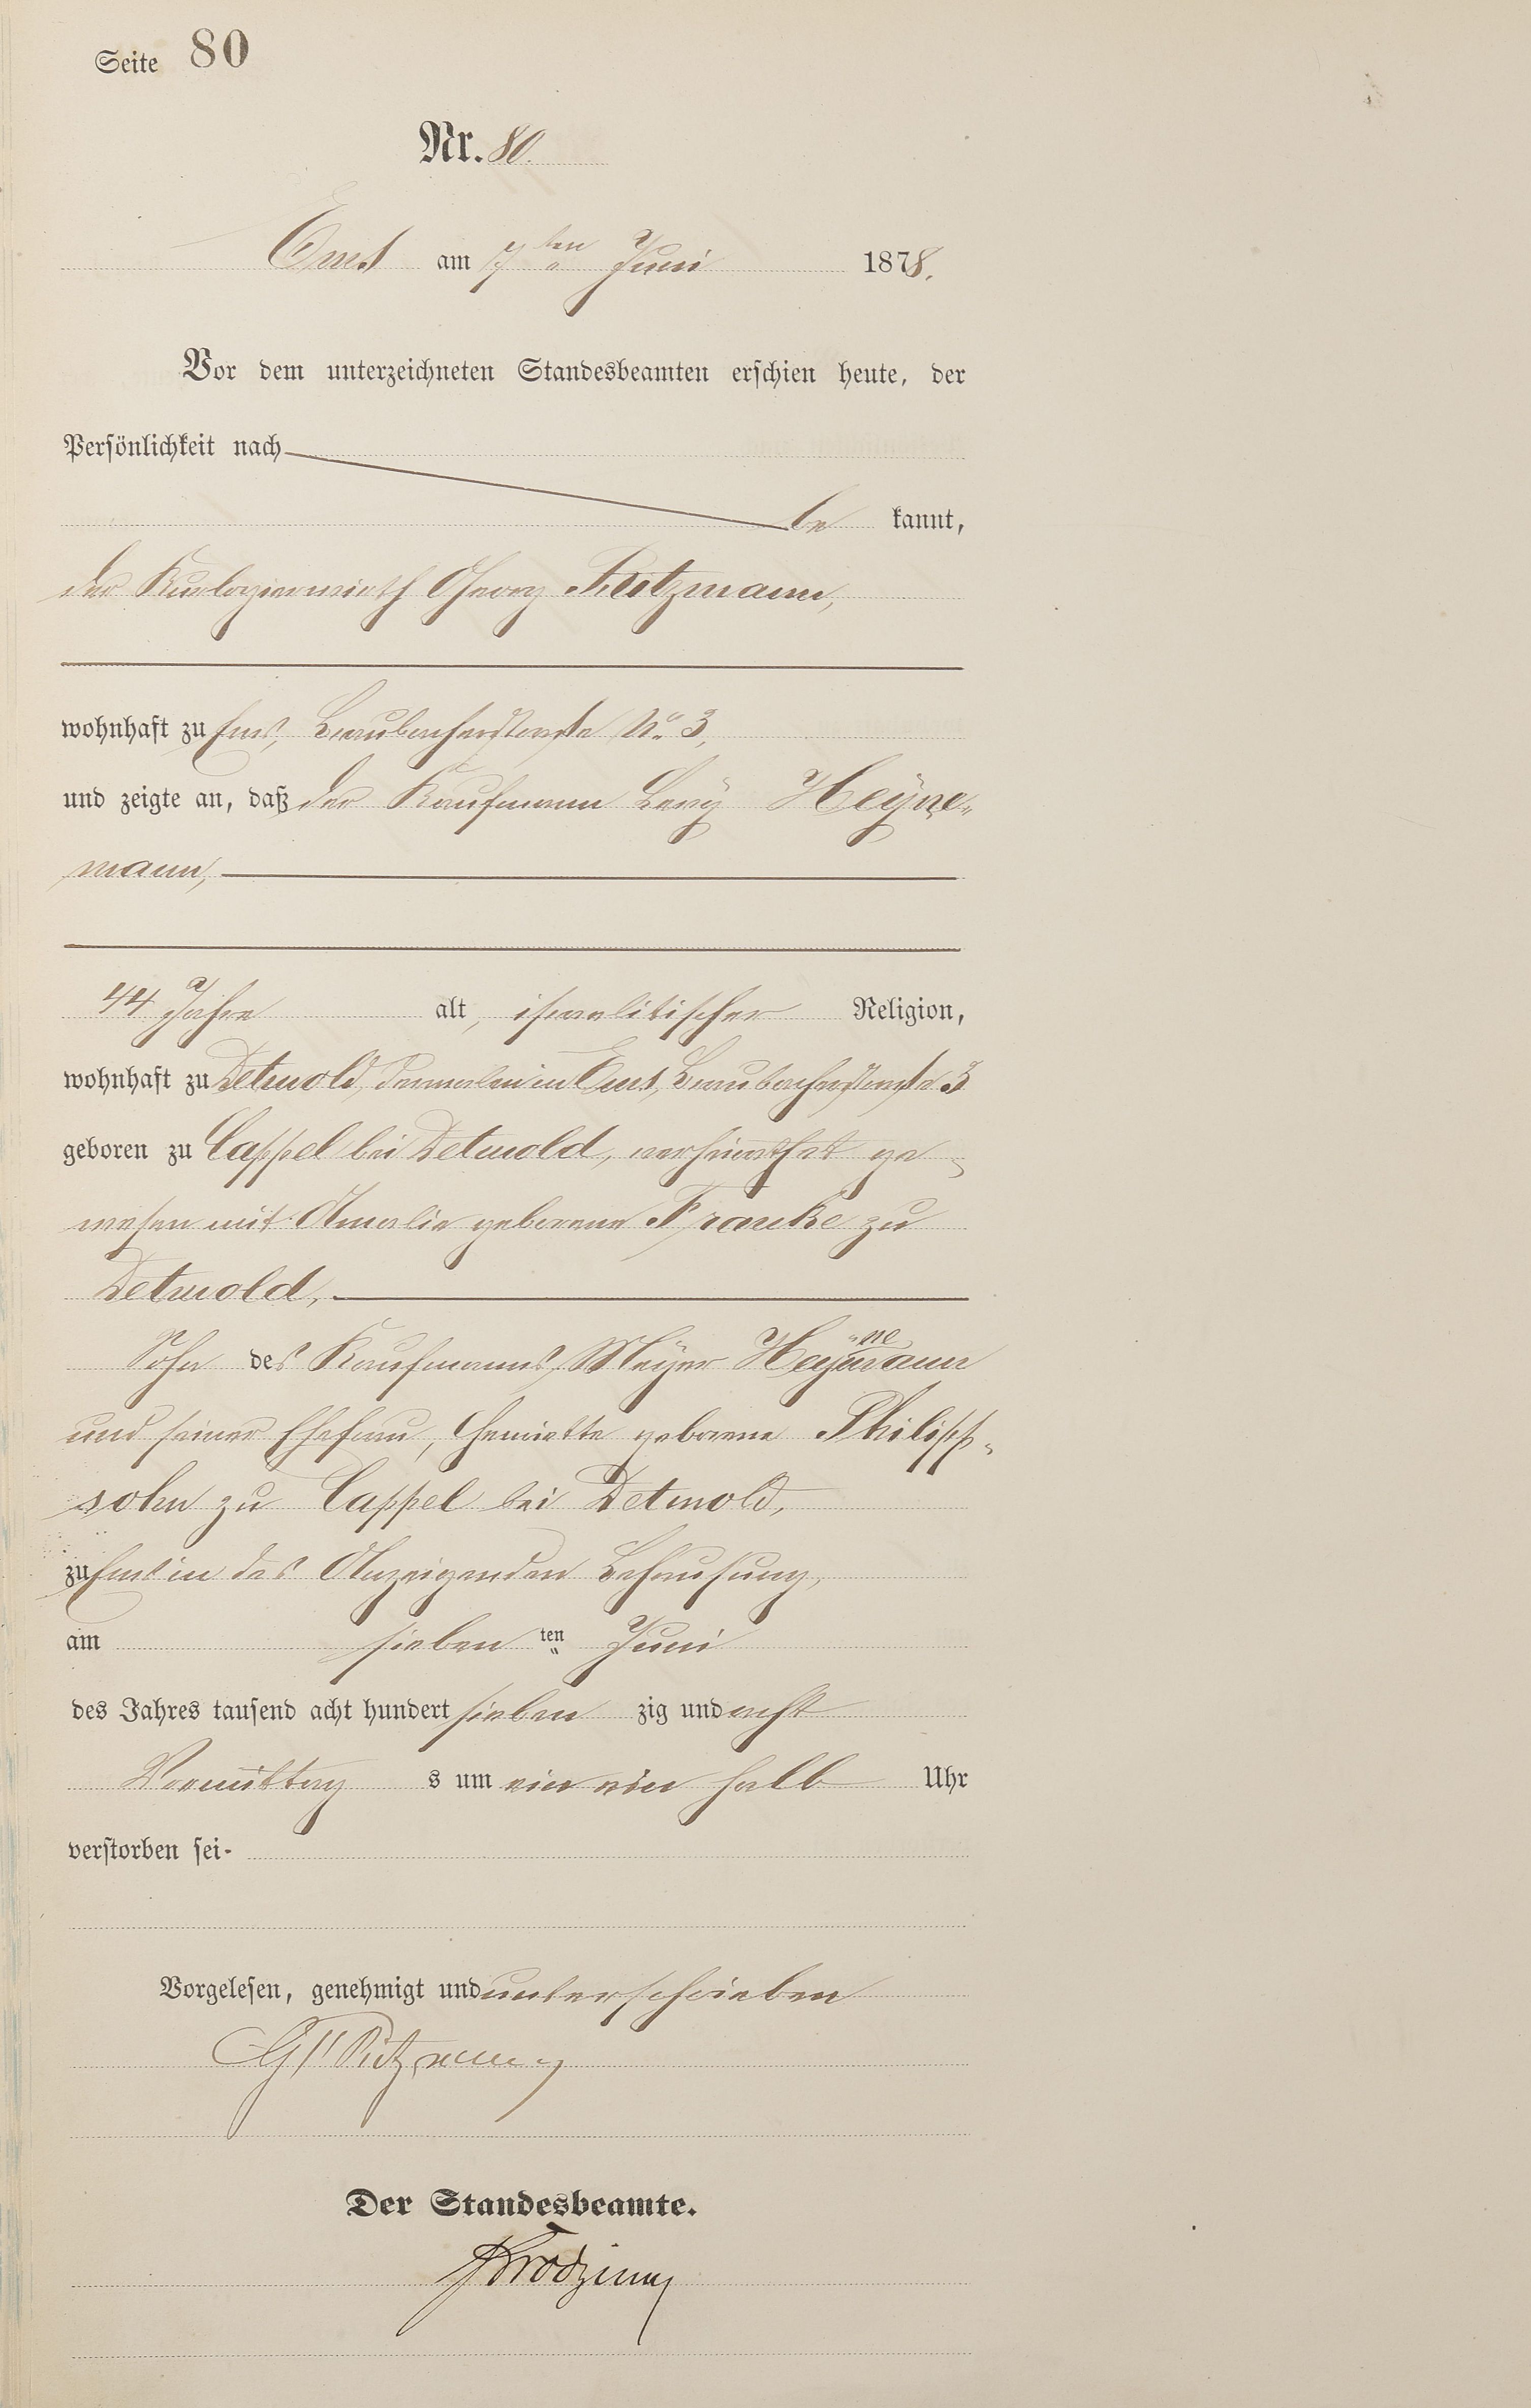 Seite 80
Nr. 80.
Ems am 7ten Juni 1878.
Vor dem unterzeichneten Standesbeamten erschien heute, der
Persönlichkeit nach
be kannt,
der Kurlogierwirth Georg
wohnhaft zu Ems, Braubacherstraße No. 3,
und zeigte an, daß der Kaufmann Levÿ Heÿne-
mann,
44 Jahre alt, israelitischer Religion,
wohnhaft zu Detmold, dermalen in Ems, Braubacherstraße 3
geboren zu Cappel bei Detmold, verheirathet ge-
wesen mit Amalie geborene Franke zu
Detmold,
Sohn des Kaufmanns Meÿer Heÿnemann
und seiner Ehefrau, Henriette geborene Philipp-
sohn zu Cappel bei Detmold,
zu Ems in des Anzeigenden Behausung,
am sieben ten Juni
des Jahres tausend acht hundert sieben zig und acht
Vormittag s um ein ein halb Uhr
verstorben sei.
Vorgelesen, genehmigt und unterschrieben
Der Standesbeamte.